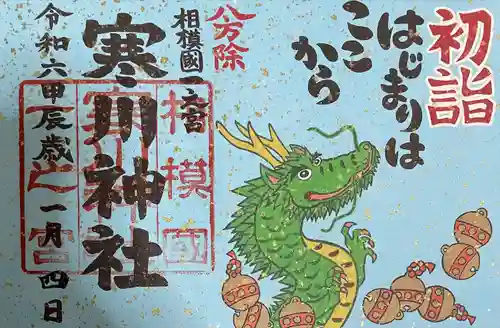 初詣
はじまりは
ここ
から
八方除
相模國一之宮
寒川神社
相模國一之宮寒川神社
令和六甲辰歳一月四日